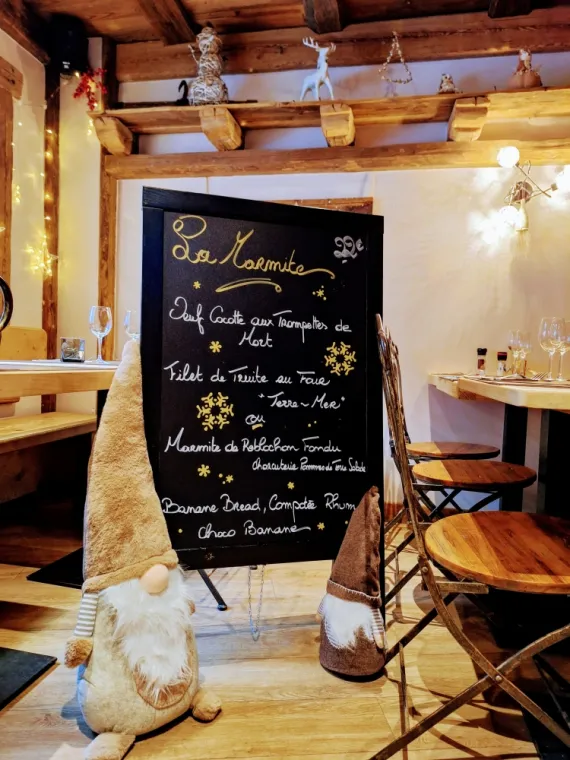 La Marmite
Oeuf Cocotte aux Trompettes de
Mort
Filet de Truite au Four
"Terre-Mer"
ou
Marmite de Reblochon Fondu
charcuterie Pommes de Terre Salade
Banane Bread, Compotée Rhum
Choco Banane